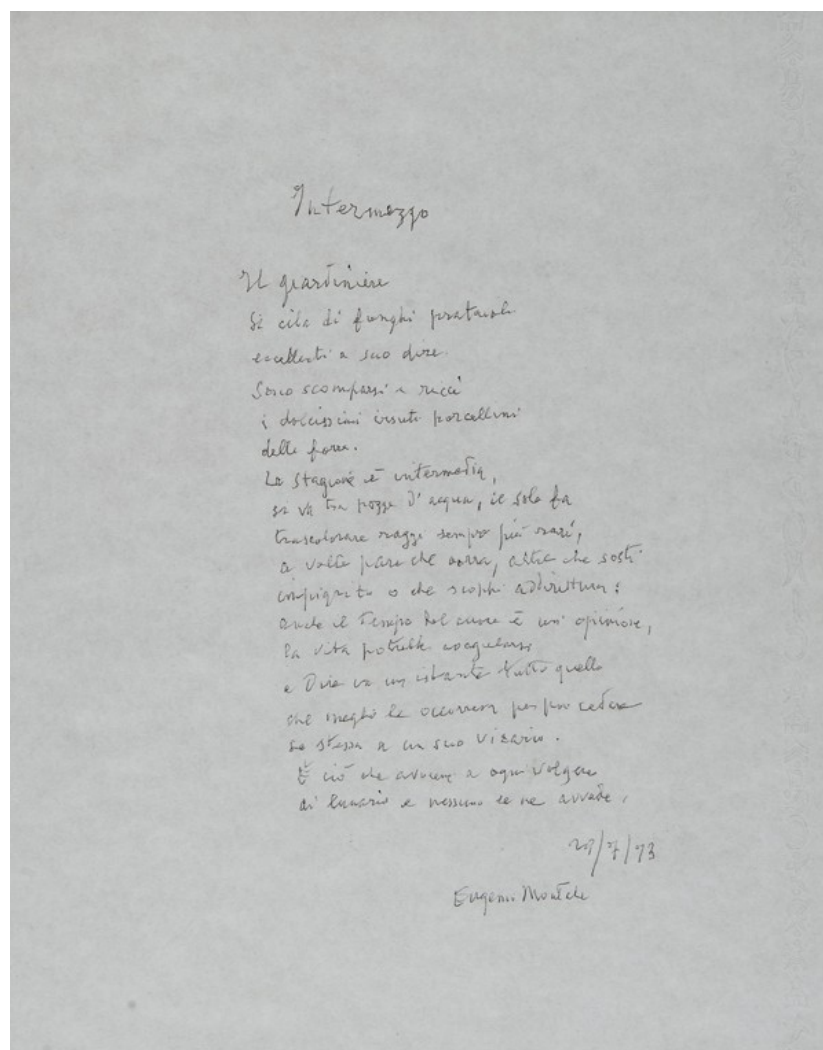 Intermezzo
Il giardiniere
si ciba di funghi prataioli
eccellenti a suo dire.
Sono scomparsi i ricci
i dolcissimi irsuti porcellini
delle forre.
La stagione è intermedia,
si va tra pozze d'acqua, il sole fa
trascolorare raggi sempre più rari,
a volte pare che corra, altre che sosti
impigrito o che scoppi addirittura;
anche il tempo del cuore è un'opinione,
la vita potrebbe coagularsi
e dire in un istante tutto quello
che meglio le occorreva per poi cedere
se stessa a un suo vicario.
È ciò che avviene a ogni volgere
di lunario e nessuno se ne avvede.
Eugenio Montale